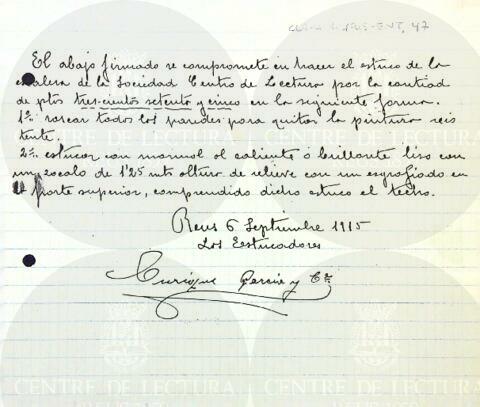 El abajo firmado se compromete en hacer el estuco de la
escalera de la Sociedad Centro de Lectura por la cantidad
de ptas tres-cientos setenta y cinco en la siguiente forma.
1º rascar todos los paredes para quitar la pintura
tente.
2º estucar con marmol al caliente ó brillante liso con
un zocalo de 1'25 mts altura de relieve con un esgrafiado en
parte superior, comprendido dicho estuco el techo.
Reus 6 Septiembre 1915
Los Estucadores
Enrique Garcia y Cª
CENTRE DE LECTURA
CENTRE DE LECTURA
CENTRE DE LECTURA
CENTRE DE LECTURA